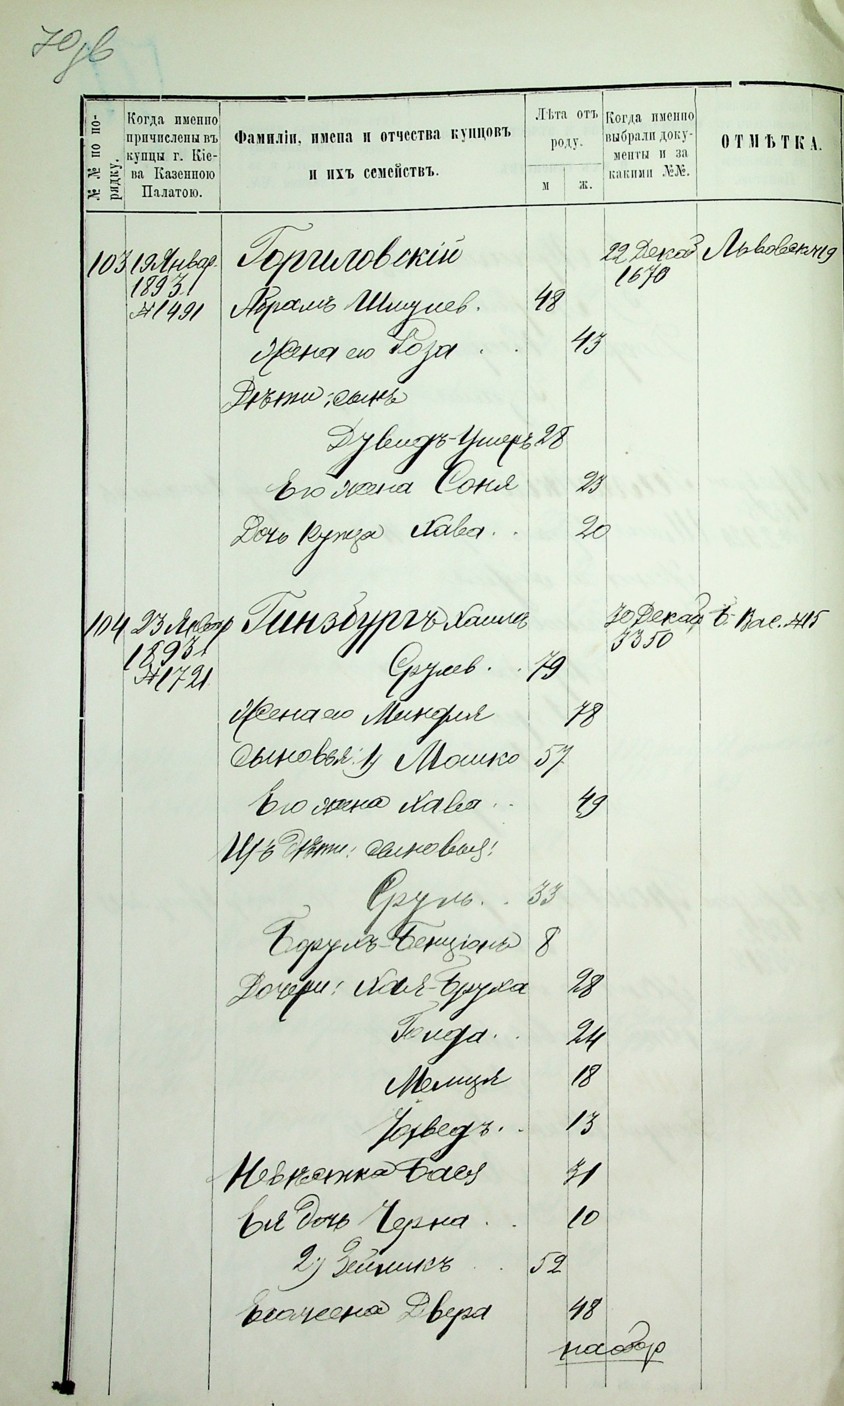 №№ по порядку.
Когда именно причислены въ купцы г. Кіева Казенною Палатою.
Фамиліи, имена и отчества купцовъ и ихъ семействъ.
Лѣта отъ роду.
м
ж.
Когда именно выбрали документы и за какими №№.
ОТМѢТКА.
103 19 Январ. Гориловскій 22 Декаб Львовск №19
1893 1670
№1491 Абрамъ Шмулев. 48
Жена его Роза 43
Дѣти: сынъ
Дувидъ-Ушеръ 28
Его жена Соня 23
Дочь купца Хава 20
104 23 Январ Гинзбургъ Хаимъ 30 Декаб Б. Вас. №15
1893 3350
№1721 Срулев. 79
Жена его Миндля 78
Сыновья: 1) Мошко 57
Его жена Хава 49
Ихъ дѣти: сыновья:
Сруль 33
Борухъ-Бенціонъ 8
Дочери: Хая-Бруха 28
Голда 24
18
13
Невѣстка Бася 31
Ея дочь Черна 10
2) Зейликъ 52
Его жена Двера 48
на обор